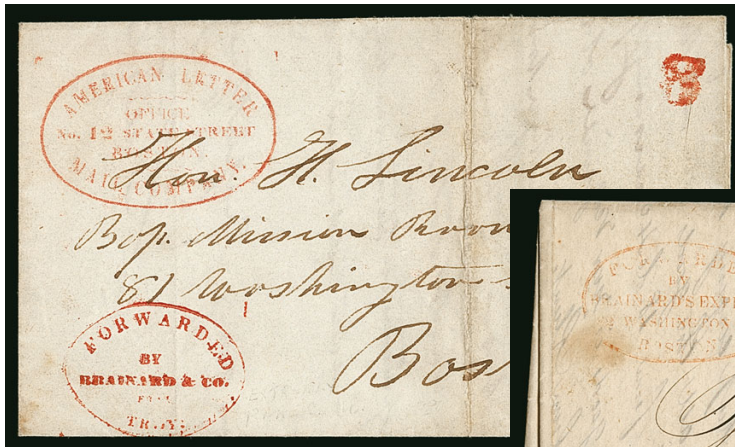 AMERICAN LETTER
OFFICE
No. 12 STATE STREET
BOSTON.
MAIL COMPANY.
Hon H. Lincoln
Bap. Mission Room
81 Washington
Bos
FORWARDED
BY
BRAINARD & CO.
FROM
TROY.
FORWARDE
BY
BRAINARD'S EXP
WASHINGTON
BOSTON